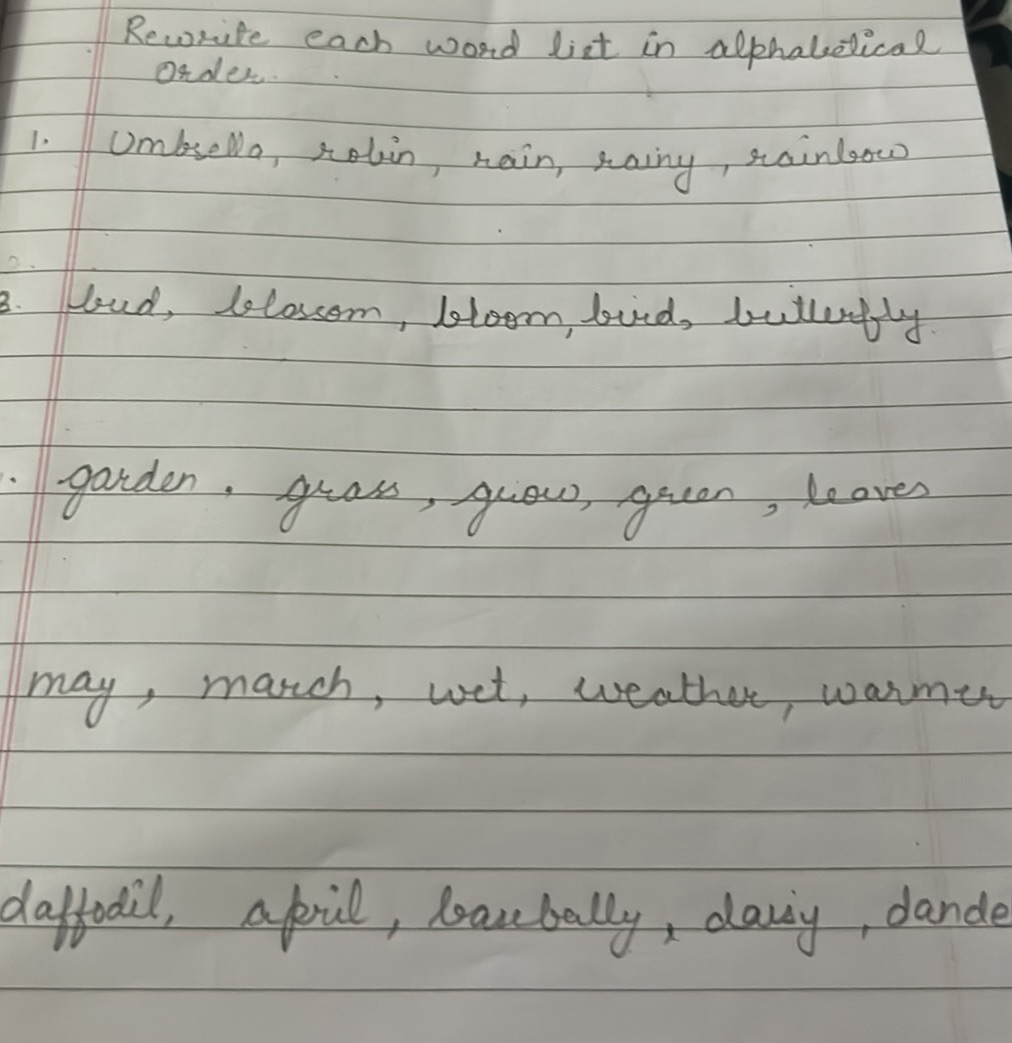 Rewrite each word list in alphabetical
Order.
1. Umbrella, robin, rain, rainy, rainbow
2.
3. bud, blossom, bloom, bird, butterfly.
. garden, grass, grow, green, leaves
may, march, wet, weather, warmer
daffodil, april, basebally, daisy, dande